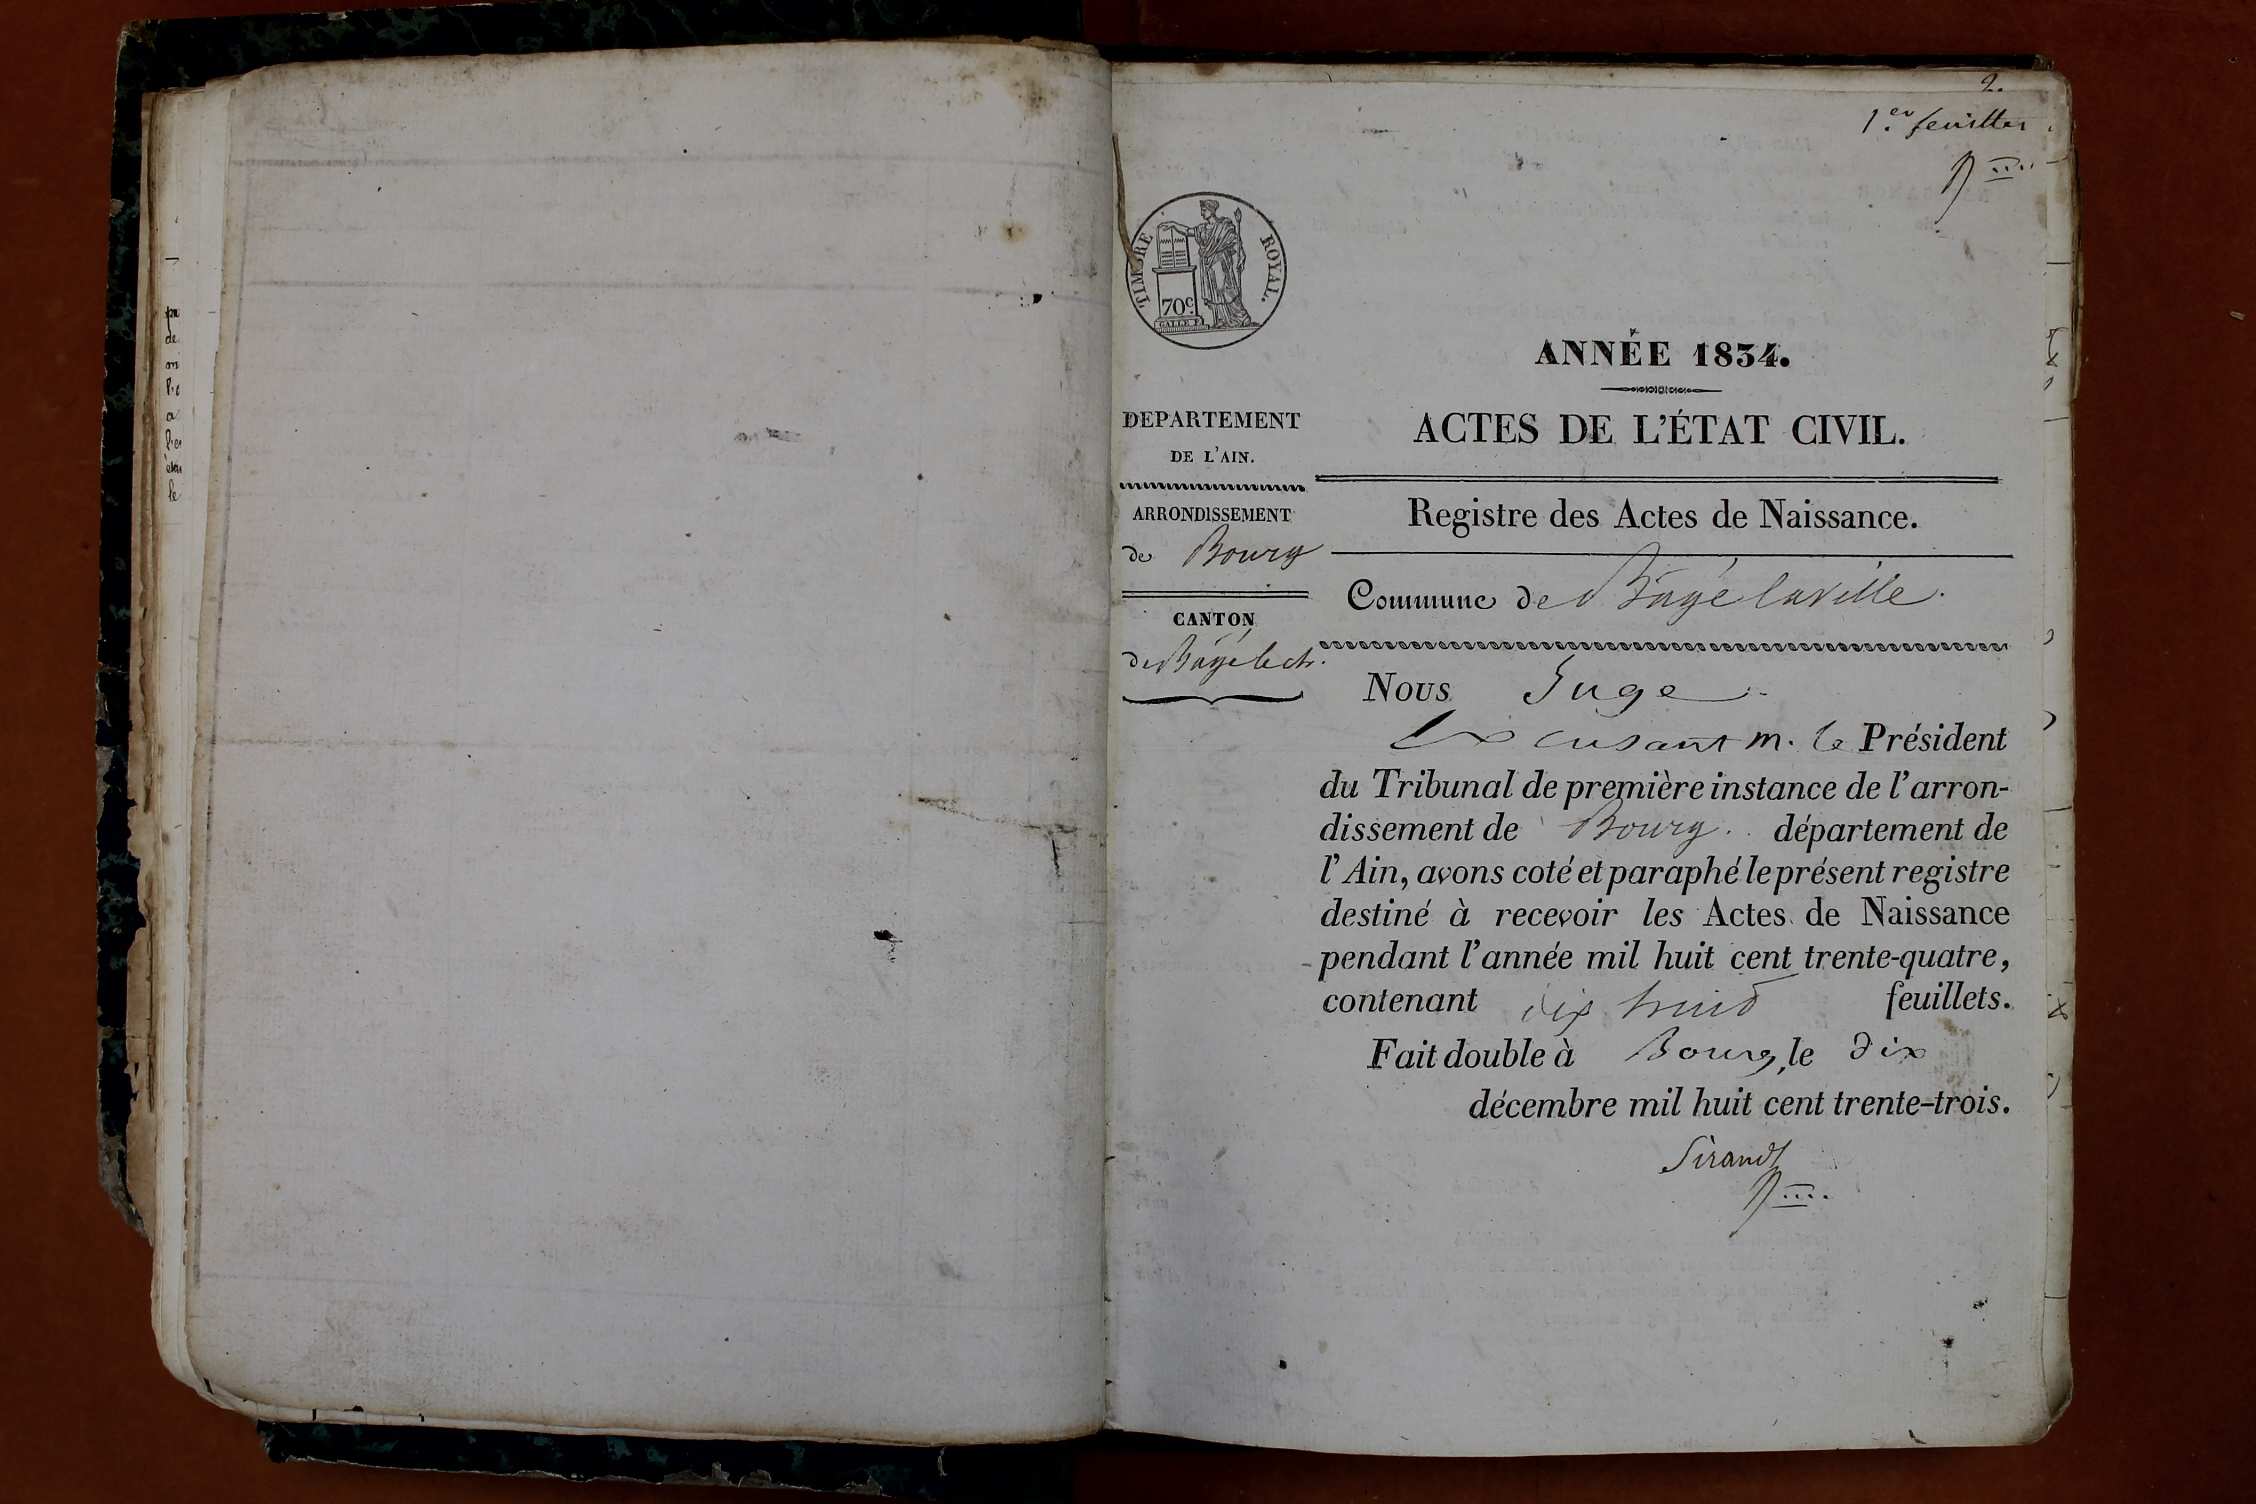 pa
de
ni
a
le
2.
1.er feuillet
TIMBRE ROYAL.
70c.
GALLE F.
ANNÉE 1834.
DEPARTEMENT
DE L'AIN.
ACTES DE L'ÉTAT CIVIL.
ARRONDISSEMENT
de Bourg
Registre des Actes de Naissance.
CANTON
de Bâgé le ch.
Commune de Bâgé la ville.
Nous Juge
Excusant m. le Président
du Tribunal de première instance de l'arron-
dissement de Bourg. département de
l'Ain, avons coté et paraphé le présent registre
destiné à recevoir les Actes de Naissance
pendant l'année mil huit cent trente-quatre,
contenant dix huit feuillets.
Fait double à Bourg, le dix
décembre mil huit cent trente-trois.
Sirand